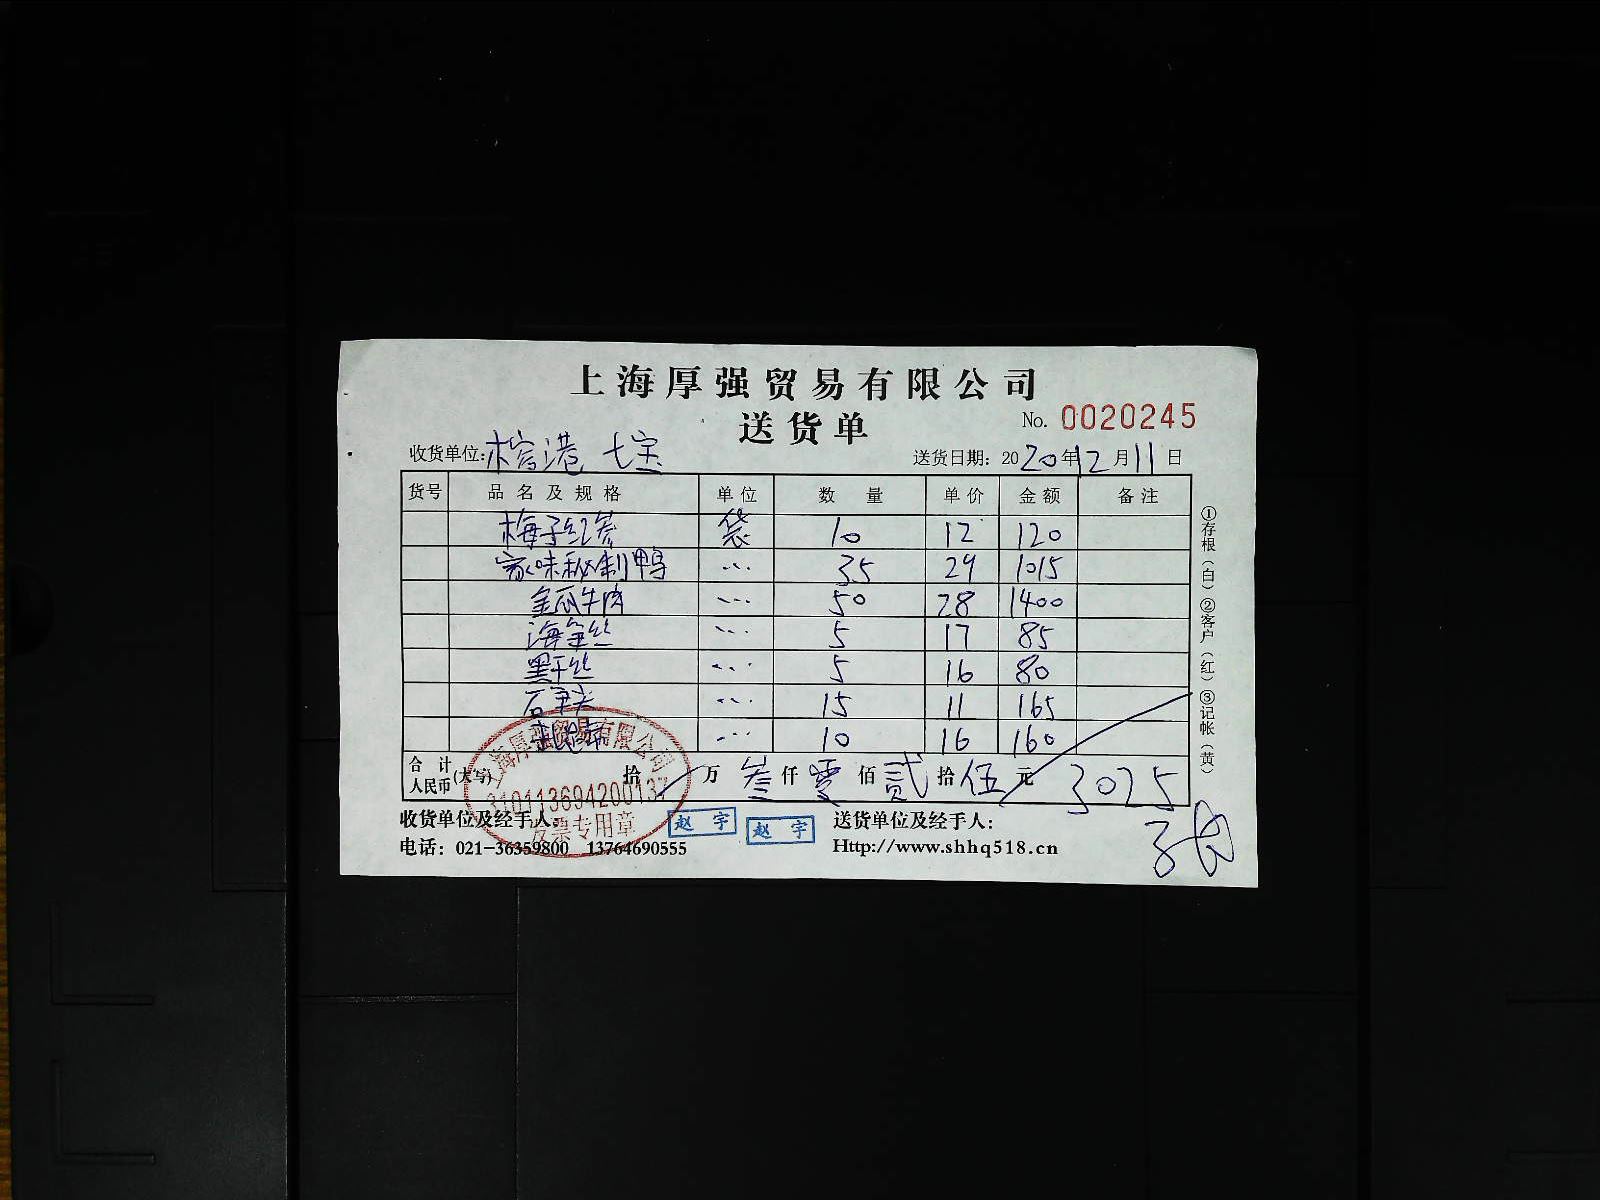 上海厚强贸易有限公司
送货单
No. 0020245
收货单位: 榕港 七宝
送货日期: 2020年12月11日
货号 品名及规格 单位 数量 单价 金额 备注
梅子红茶 袋 10 12 120
家味秘制鸭 ... 35 29 1015
金瓜牛肉 ... 50 28 1400
海蜇丝 ... 5 17 85
黑干丝 ... 5 16 80
石笋尖 ... 15 11 165
... 10 16 160
合计人民币(大写) 拾 万 叁仟零佰贰拾伍元 3025
收货单位及经手人:
赵宇
赵宇
送货单位及经手人:
电话: 021-36359800 13764690555
Http://www.shhq518.cn
①存根(白)②客户(红)③记帐(黄)
上海厚强贸易有限公司
310113694200137
发票专用章